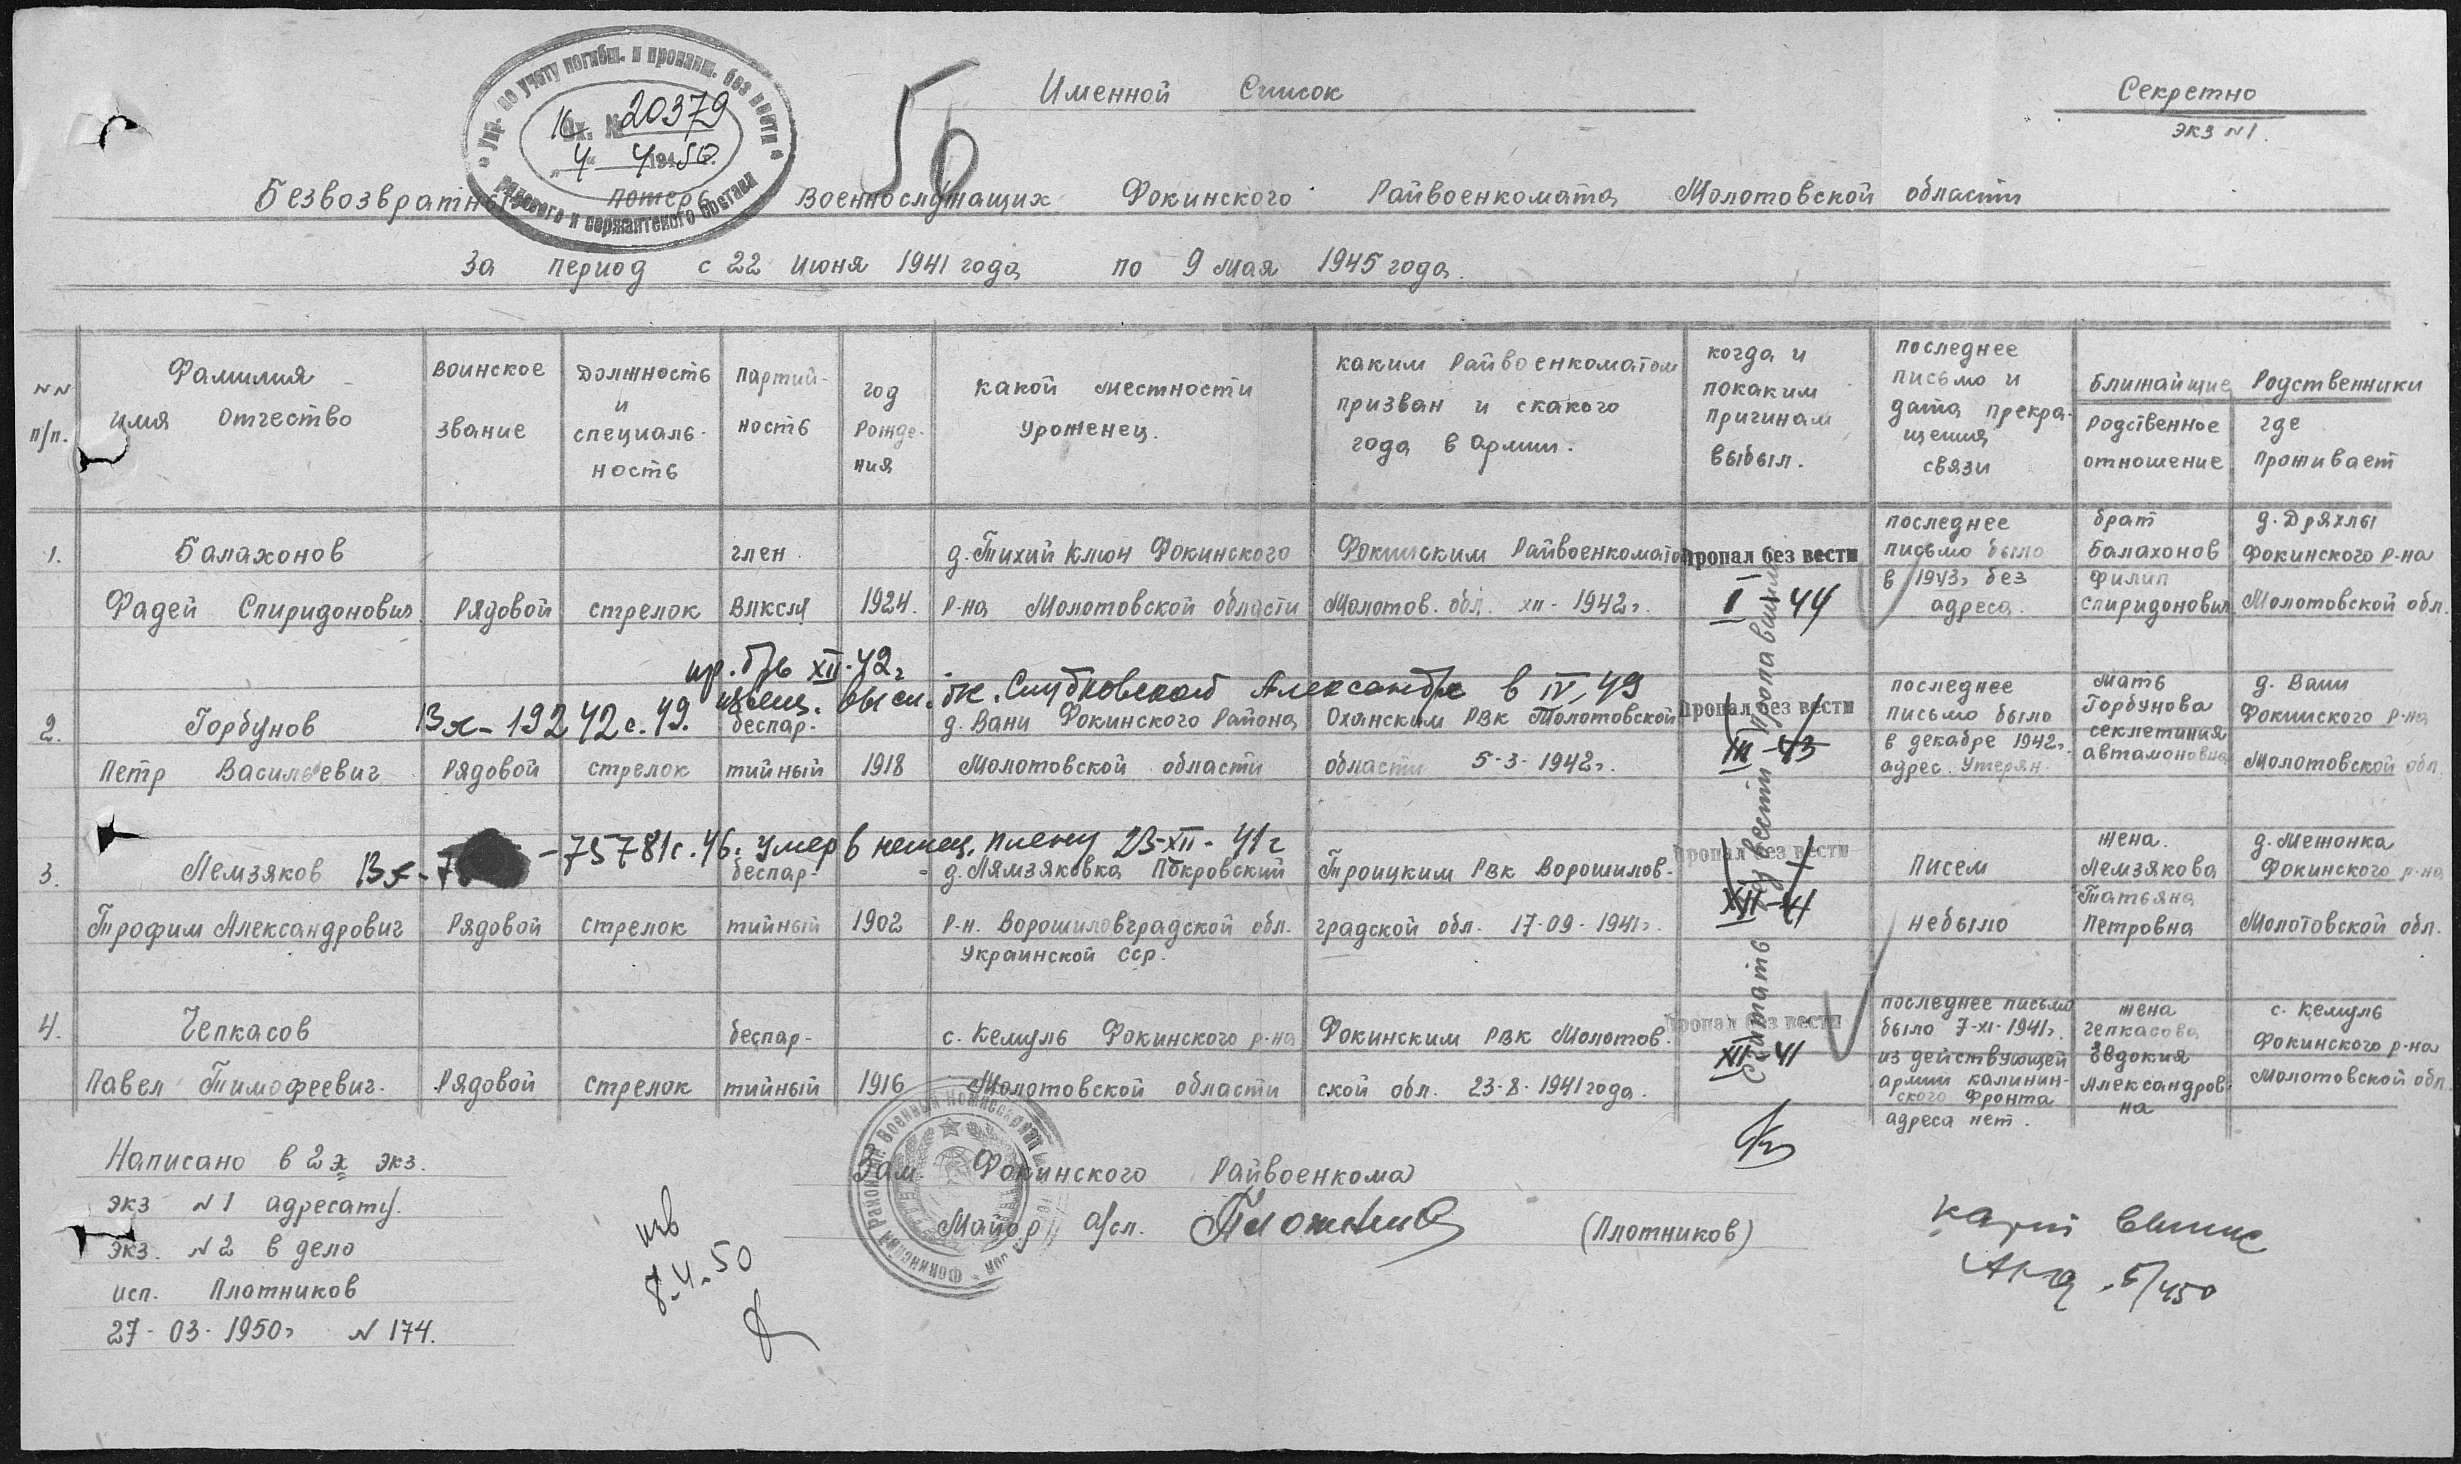 Упр. по учету погибш. и пропавш. без вести
рядового и сержантского состава
Вх. № 20379
"4" 4 1950.
56
Именной Список
Секретно
экз №1.
Безвозвратных потерь военнослужащих Фокинского Райвоенкомата Молотовской области
за период с 22 июня 1941 года по 9 мая 1945 года.
№№ п/п.
Фамилия имя отчество
воинское звание
должность и специаль-ность
партий-ность
год рожде-ния
какой местности уроженец.
каким Райвоенкоматом призван и скакого года в армии.
когда и покаким причинам выбыл.
последнее письмо и дата прекра-щения связи
ближайшие Родственники
родственное отношение
где проживает
1.
Балахонов
Фадей Спиридонович
рядовой
стрелок
член
ВЛКСМ
1924.
д. Тихий Ключ Фокинского
р-на Молотовской области
Фокинским Райвоенкоматом
Молотов. обл. XII-1942г.
Пропал без вести
I-44
последнее
письмо было
в 1943г без
адреса.
брат
Балахонов
Филип
Спиридонович
д. Дряхлы
Фокинского р-на
Молотовской обл.
пр. б/в XII-42г
извещ. высл. Александре в IV, 49
Вх-19242 с. 49.
2.
Горбунов
Петр Васильевич
рядовой
стрелок
беспар-
тийный
1918
д. Вани Фокинского Района
Молотовской области
Оханским РВК Молотовской
области 5-3-1942г.
Пропал без вести
III-43
последнее
письмо было
в декабре 1942г.
адрес. утерян.
мать
Горбунова
секлетиния
автамоновна
д. Вани
Фокинского р-на
Молотовской обл.
Вх-7
-75781с. 46. умер в немец. плену 23-XII-41г
3.
Лемзяков
Трофим Александрович
рядовой
стрелок
беспар-
тийный
1902
д. Лямзяковка Покровский
р-н. Ворошиловградской обл.
Украинской сср.
Троицким РВК Ворошилов-
градской обл. 17-09-1941г.
Пропал без вести
XII-41
писем
небыло
жена.
Лемзякова
Татьяна
Петровна
д. Метонка
Фокинского р-на
Молотовской обл.
4.
Чепкасов
Павел Тимофеевич.
рядовой
стрелок
беспар-
тийный
1916
с. Кемуль Фокинского р-на
Молотовской области
Фокинским РВК Молотов.
ской обл. 23-8-1941года.
Пропал без вести
XII-41
последнее письмо
было 7-XI-1941г.
из действующей
армии калинин-
ского Фронта
адреса нет.
жена
Чепкасова
Евдокия
Александров-
на
с. Кемуль
Фокинского р-на
Молотовской обл.
Считать без вести пропавшими
Написано в 2х экз.
экз №1 адресату.
экз. №2 в дело
исп. Плотников
27-03-1950г №174.
8.4.50
Зам. Фокинского Райвоенкома
Майор а/сл.
(Плотников)
Фокинский Районный Военный Комиссариат